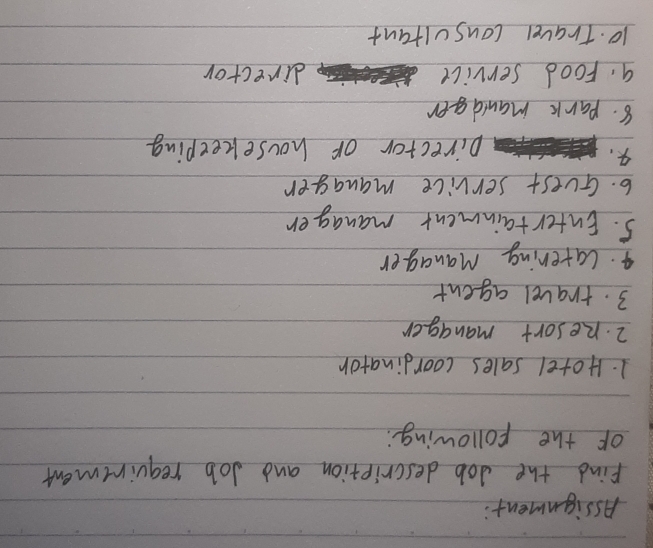 Assignment:
Find the Job description and Job requirement
of the following:
1. Hotel sales coordinator
2. Resort manager
3. travel agent
4. Catering Manager
5. Entertainment manager
6. Guest service manager
7. Director of housekeeping
8. Park manager
9. Food service director
10. Travel consultant